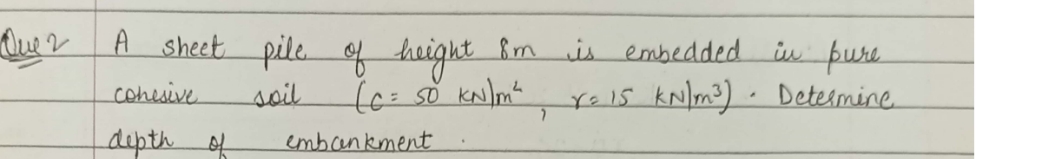 Que 2 A sheet pile of height 8m is embedded in pure
cohesive soil (c = 50 kN/m², r= 15 kN/m³). Determine
depth of embankment.